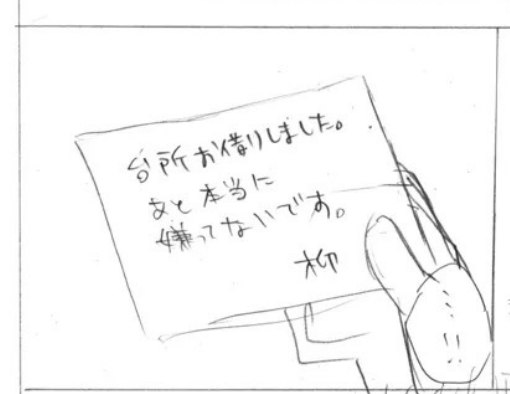 台所お借りしました。
あと本当に
嫌ってないです。
柳
…!!